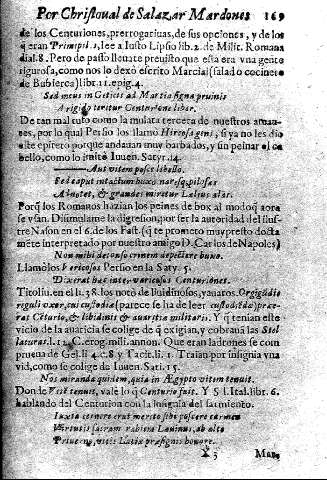 Por Christoual de Salazar Mardones 169
de los Centuriones, prerrogatiuas, de sus opciones, y de los
q̃ eran Primipili, lee a Iusto Lipsio lib. 2. de Milit. Romana
dial. 8. Pero de passo lleuate preuisto que esta era vna gente
rigurosa, como nos lo dexò escrito Marcial (salado cocinero
de Bubierca) libr. 11. epig. 4.
Sed meus in Geticis ad Martia signa pruinis
A rigido teritur Centurione liber.
De tan mal cuño como la mulata tercera de nuestros aman-
tes, por lo qual Persio los llamò Hircosa gens, si ya no les dio
este epiteto porque andauan muy barbados, y sin peinar el ca
bello, como lo imitò Iuuen. Satyr. 14.
Aut vitem posce libello.
Sed caput intactum buxo naresq; pilosas
Adnotet, & grandes miretur Lælius alas.
Porq̃ los Romanos hazian los peines de box al modo q̃ aora
se vsan. Dissimulame la digresion, por ser la autoridad del ilus-
tre Nason en el 6. de los Fast. (q̃ te prometo muy presto docta
mẽte interpretado por nuestro amigo D. Carlos de Napoles)
Non mihi detonso crinem depellere buxo.
Llamòlos Varicosos Persio en la Saty. 5.
Dixerat hæc inter varicosos Centuriones.
Tito Liu. en el li. 38. los notò de
reguli vxor, cui custodia (parece se ha de leer custodiẽdæ) præe-
rat Cẽturio, & libidinis & auaritiæ militaris. Y q̃ tenian este
vicio de la auaricia se colige de q̃ exigian, y cobrauã las Stel
laturas. l. 12. C. erog. mili. annon. Que eran ladrones se com
prueua de Gel. li. 4. c. 8. y Tacit. li. 1. Traian por insignia vna
vid, como se colige de Iuuen. Sati. 15.
Nos miranda quidem, quia in Ægypto vitem tenuit.
Donde Vitẽ tenuit, vale lo q̃ Centurio fuit. Y S. Ital. libr. 6.
hablando del Centurion con la insignia del sarmiento.
Iuxta cernere erat merito sibi poscere carmen
Virtutis sacram rabiem Lauinus, ab alto
Priuerno, vitis Latiæ præsignis honore.
X 3 Mar-